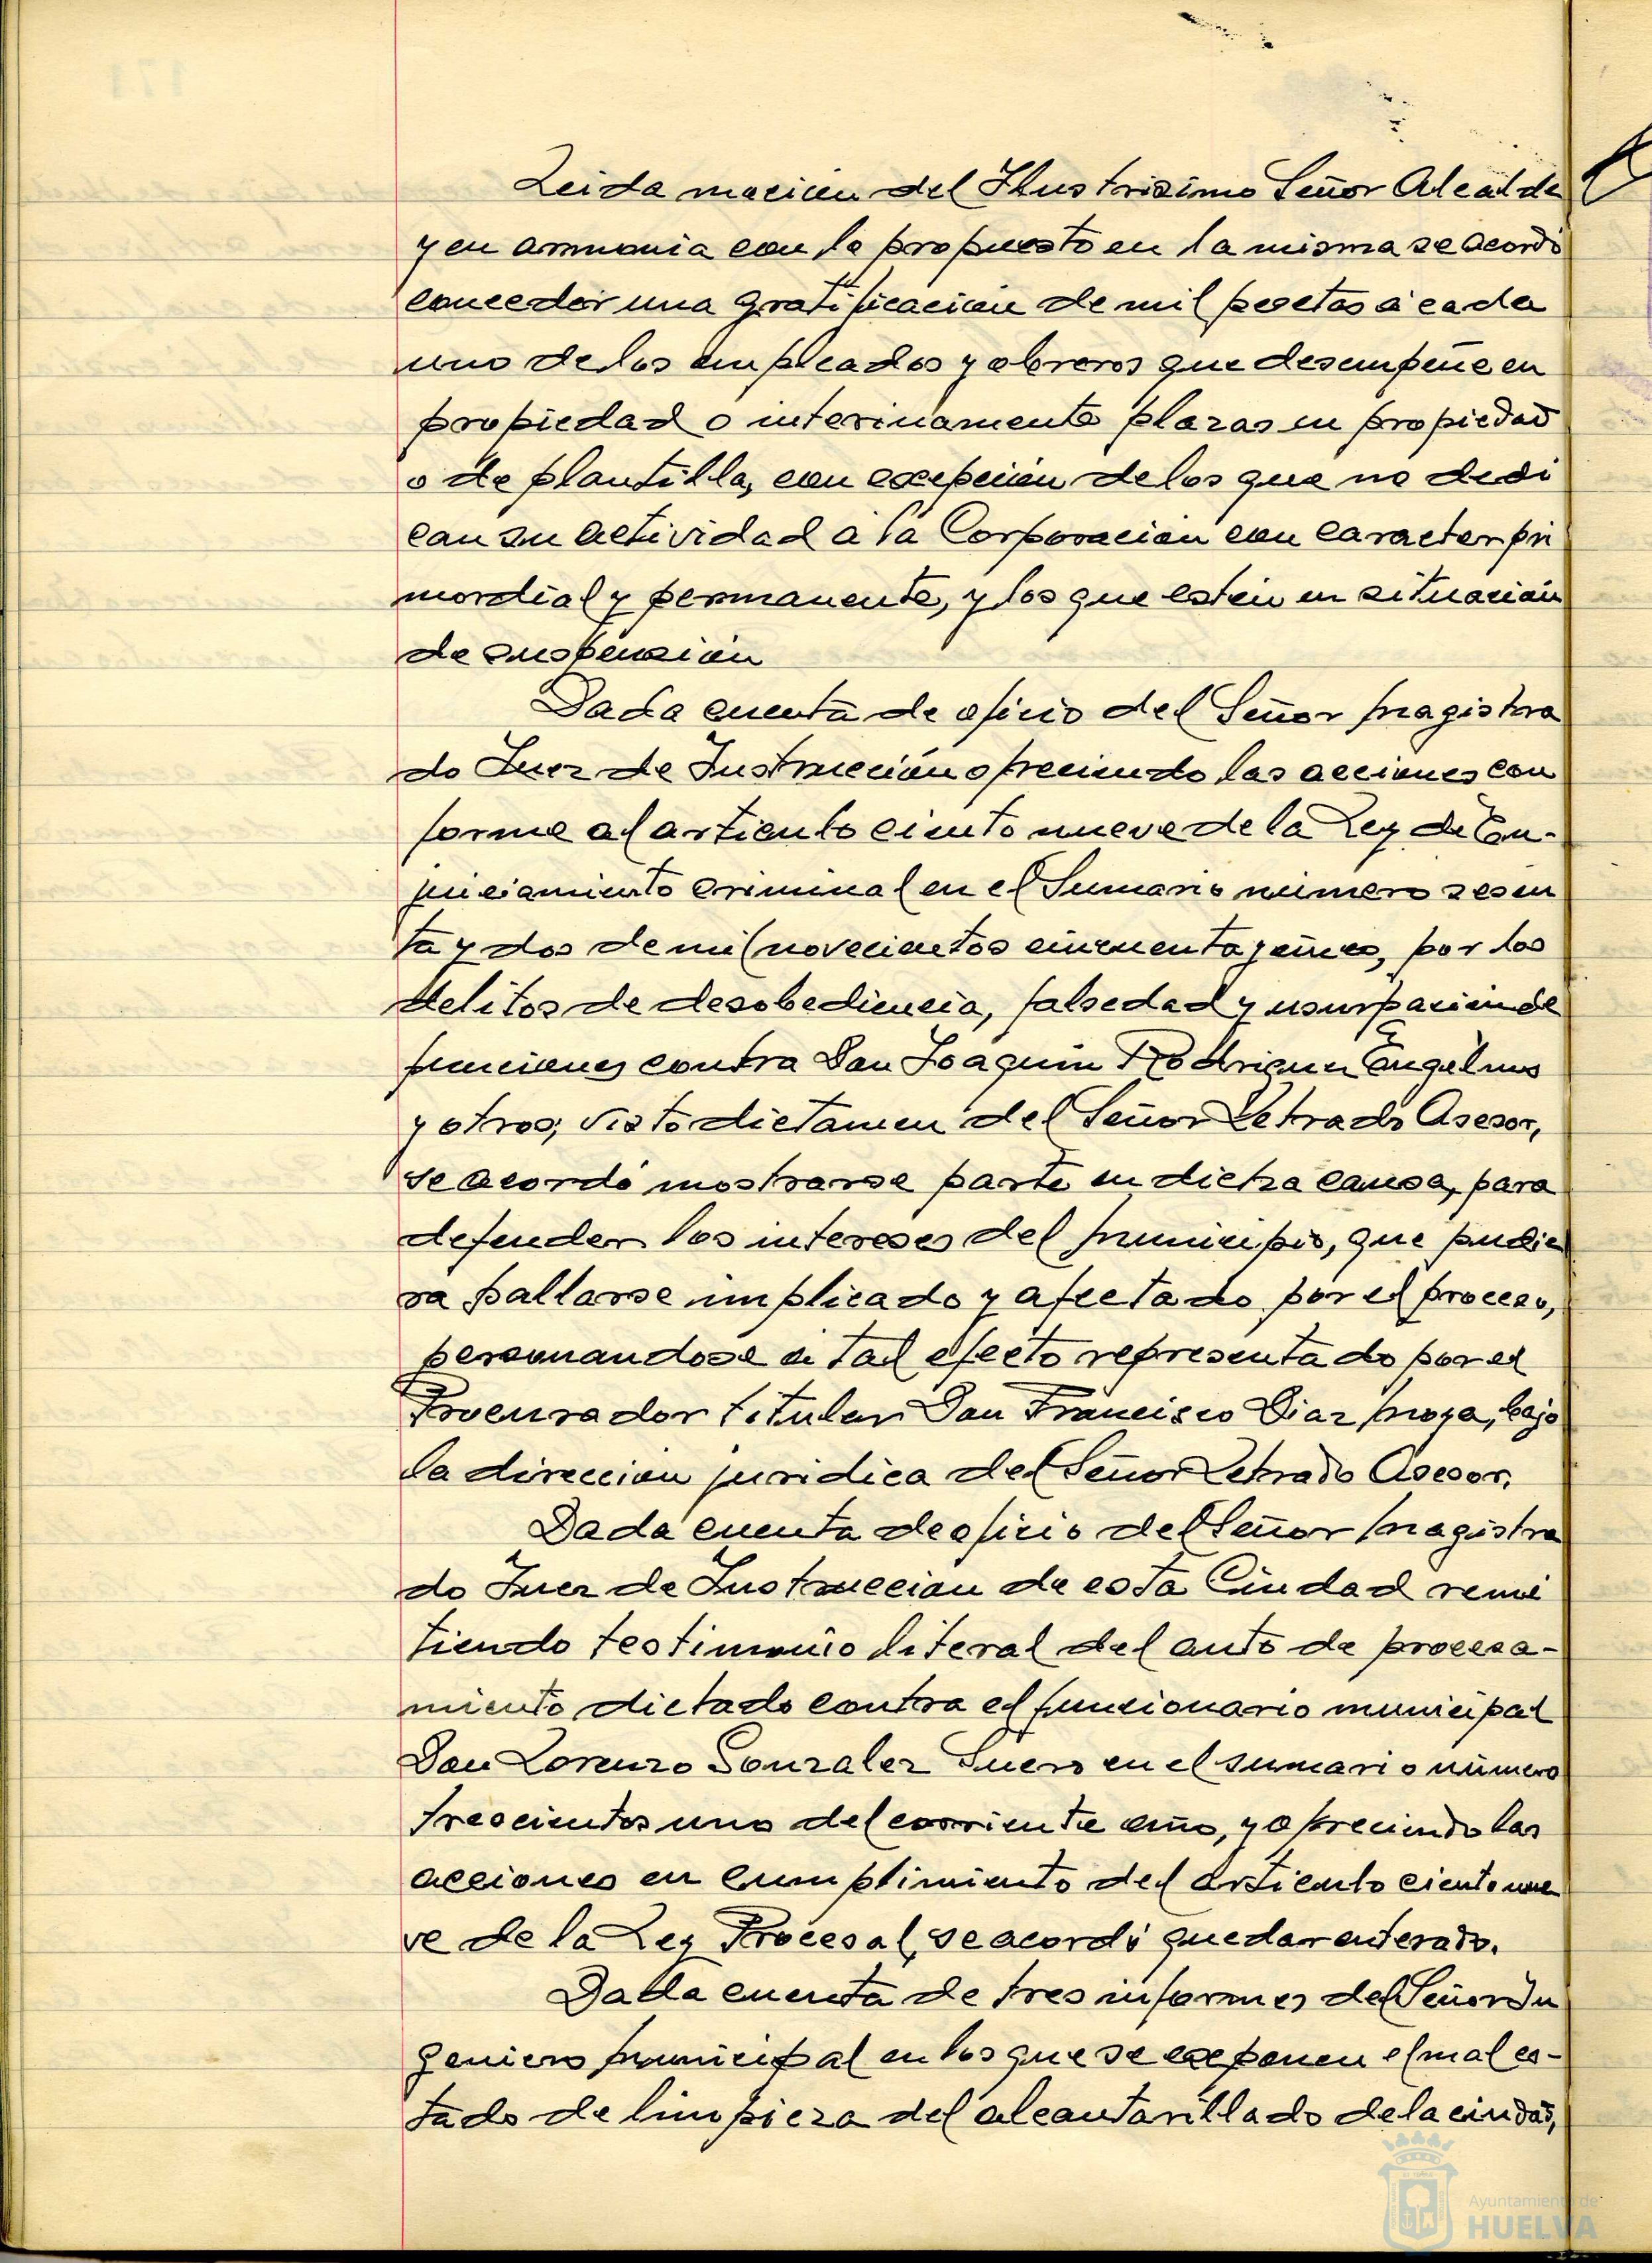 Leida mocion del Ilustrisimo Señor Alcalde
y en armonia con lo propuesto en la misma se acordó
conceder una gratificacion de mil pesetas á cada
uno de los empleados y obreros que desempeñe en
propiedad o interinamente plazas en propiedad
o de plantilla, con excepción de los que no dedi
can su actividad á la Corporacion con caracter pri
mordial y permanente, y los que estén en situación
de suspension
Dada cuenta de oficio del Señor Magistra
do Juez de Instrucción ofreciendo las acciones con
forme al articulo ciento nueve de la Ley de En-
juiciamiento Criminal en el Sumario número sesen
ta y dos de mil novecientos cincuenta y cinco, por los
delitos de desobediencia, falsedad y usurpacion de
funciones contra Don Joaquin Rodriguez
y otros; visto dictamen del Señor Letrado Asesor,
se acordó mostrarse parte en dicha causa, para
defender los intereses del Municipio, que pudie
ra hallarse implicado y afectado por el proceso,
personandose á tal efecto representado por el
Procurador titular Don Francisco Diaz Moya, bajo
la direccion juridica del Señor Letrado Asesor.
Dada cuenta de oficio del Señor Magistra
do Juez de Instruccion de esta Ciudad remi
tiendo testimonio literal del auto de procesa-
miento dictado contra el funcionario municipal
Don Lorenzo Gonzalez Suero en el sumario número
trescientos uno del corriente año, y ofreciendo las
acciones en cumplimiento del articulo ciento nue
ve de la Ley Procesal, se acordó quedar enterado.
Dada cuenta de tres informes del Señor In
geniero Municipal en los que se exponen el mal es-
tado de limpieza del alcantarillado de la ciudad,
Ayuntamiento de
HUELVA